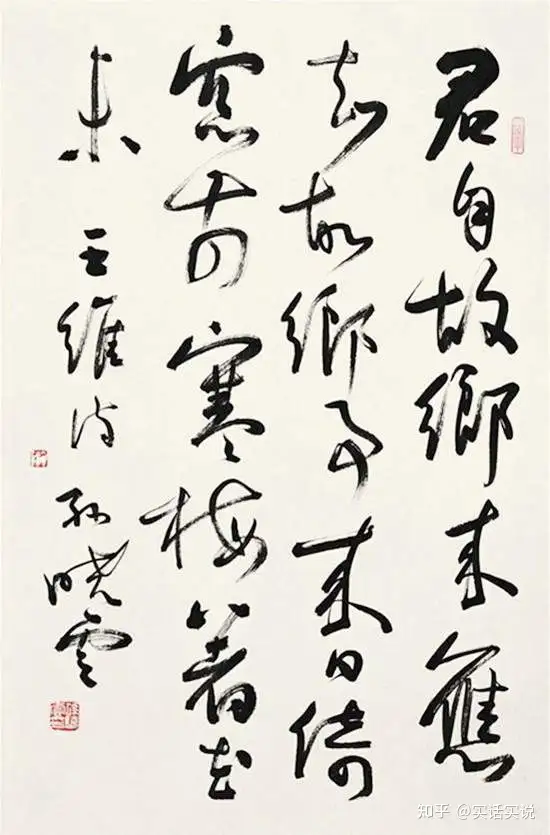 君自故鄉来應
知故鄉事来日倚
窓前寒梅著花
未 王維詩 孙晓雲
知乎 @实话实说